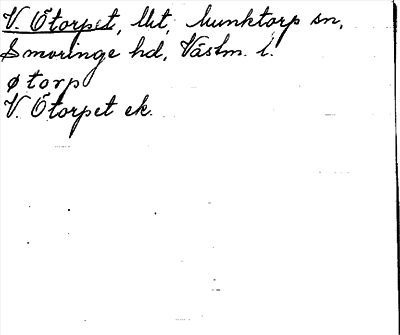 V. Ötorpet, lht, Munktorp sn,
Snevringe hd, Västm. l.
øtorp
V. Ötorpet ek.